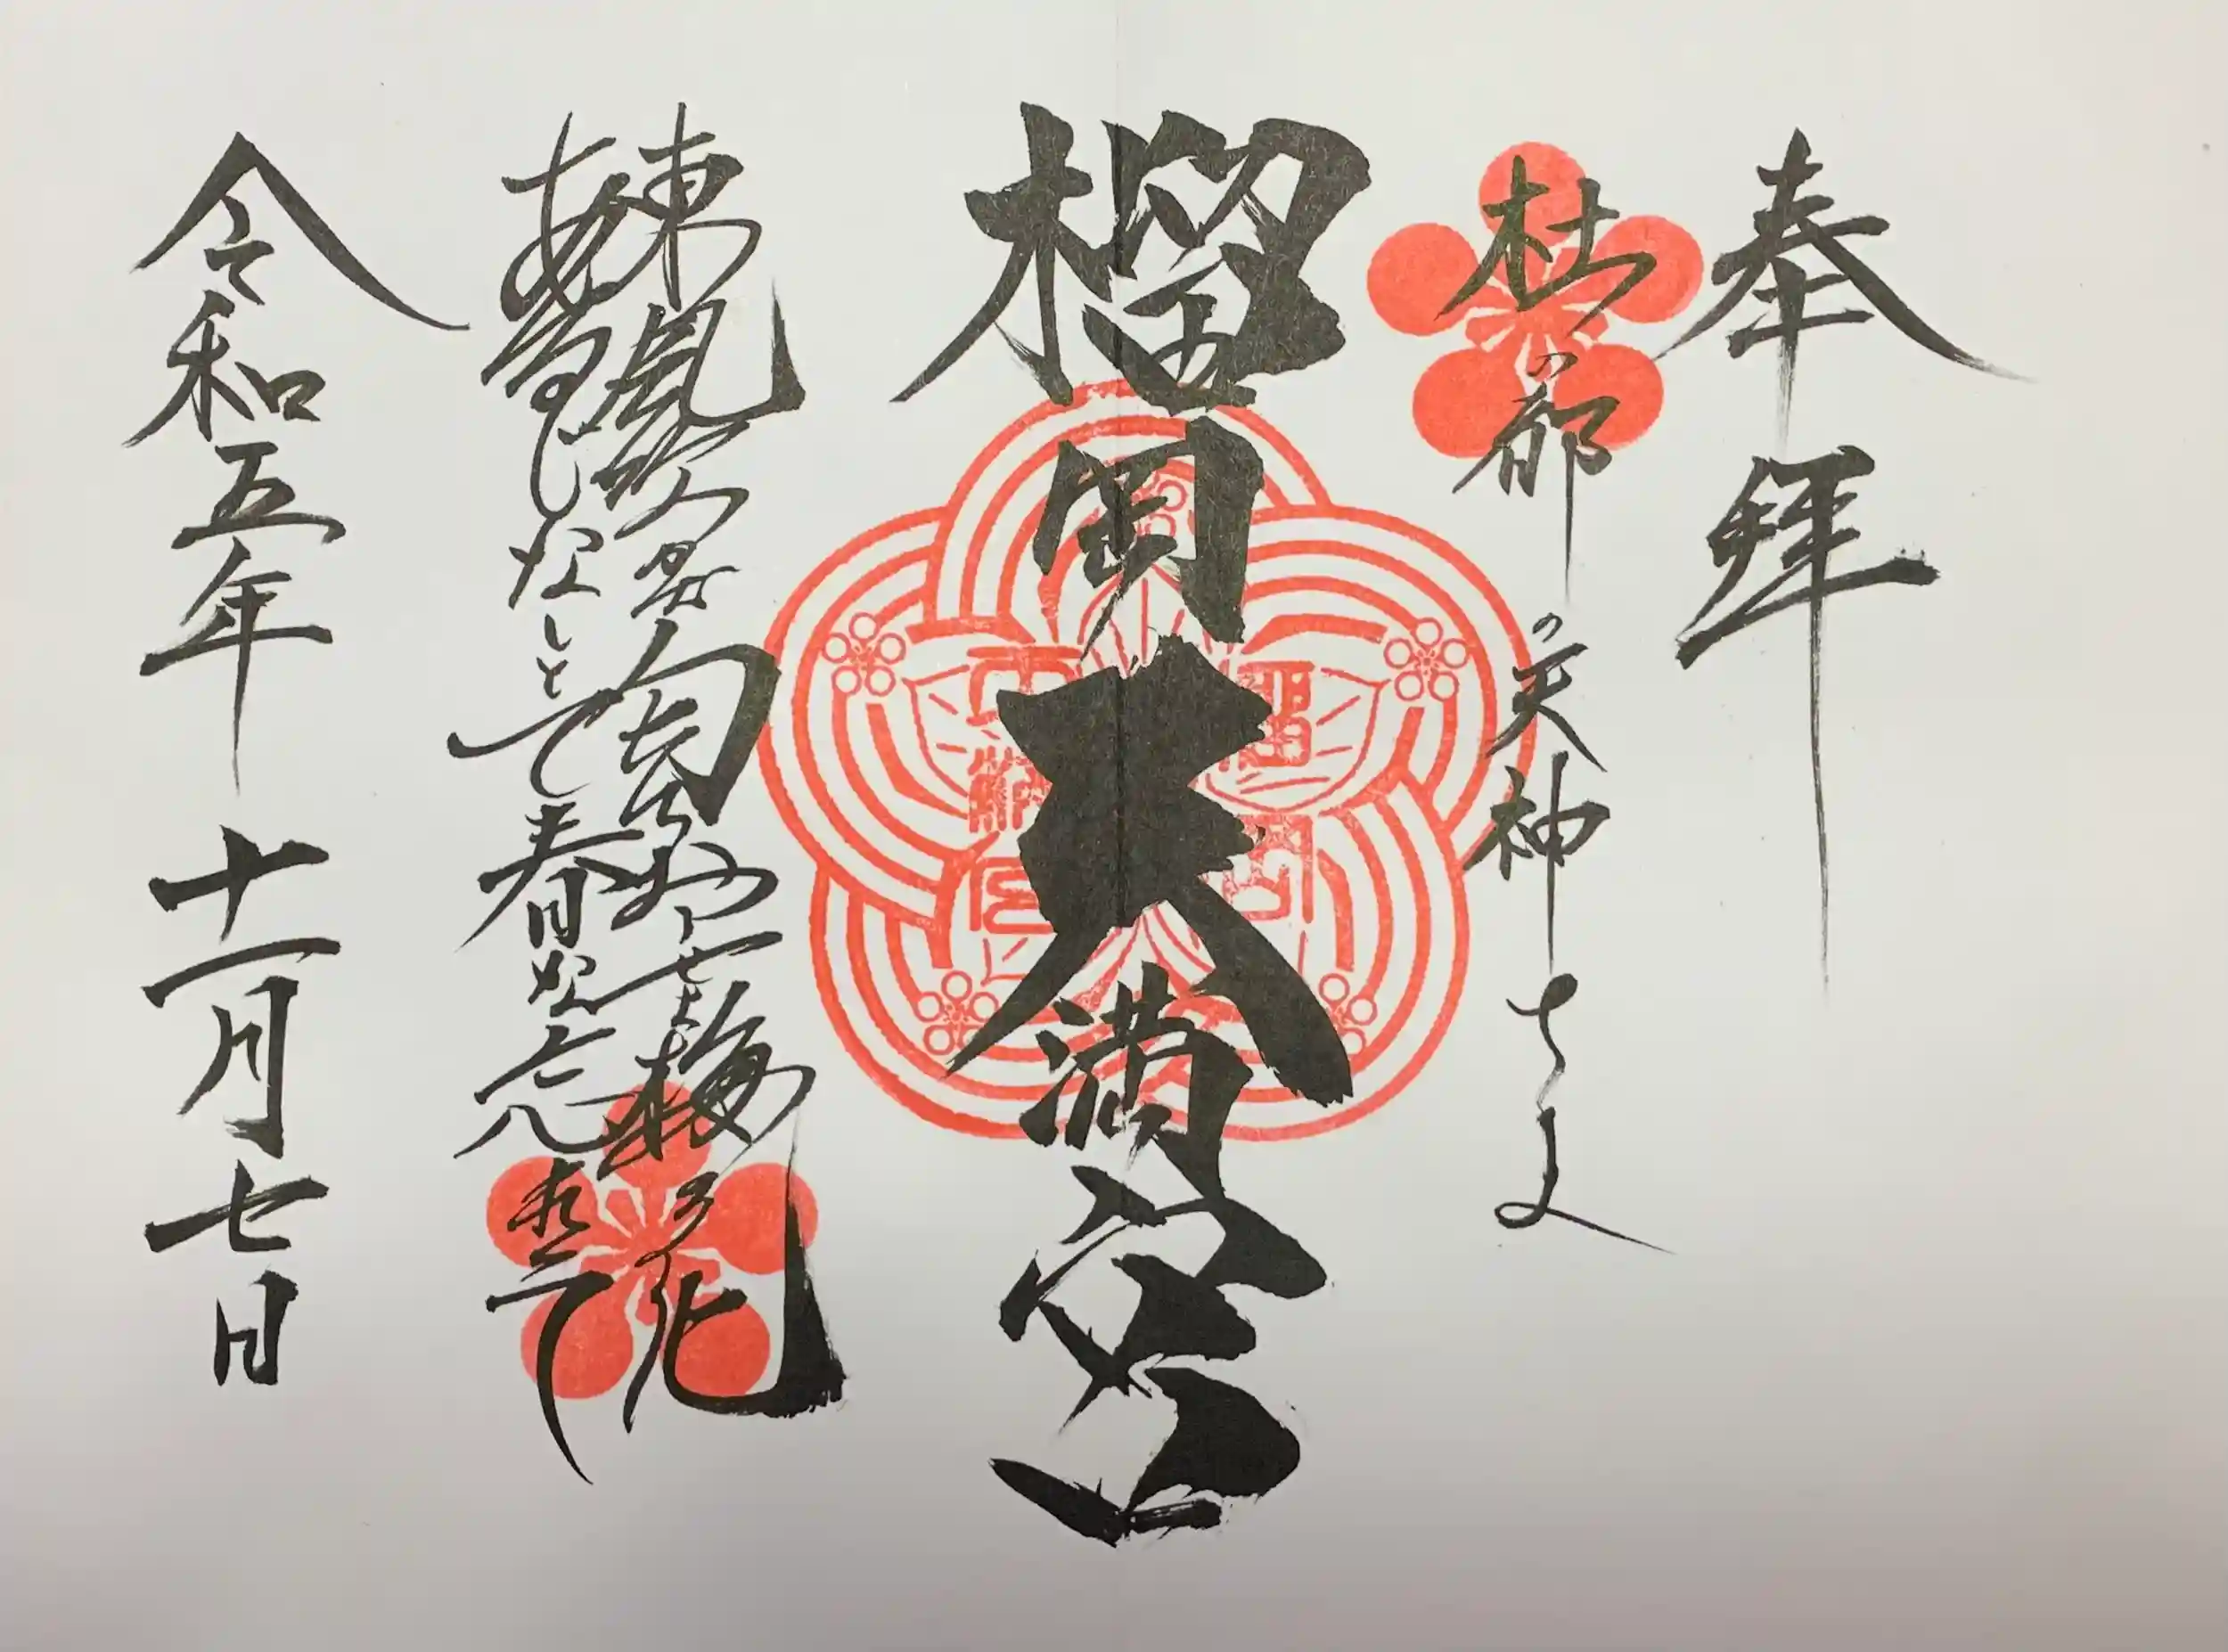 奉拝
杜の都の天神さま
榴岡天満宮
東風吹かば匂ひおこせよ梅の花
あるじなしとて春な忘れそ
令和五年十一月七日
榴岡
天満宮